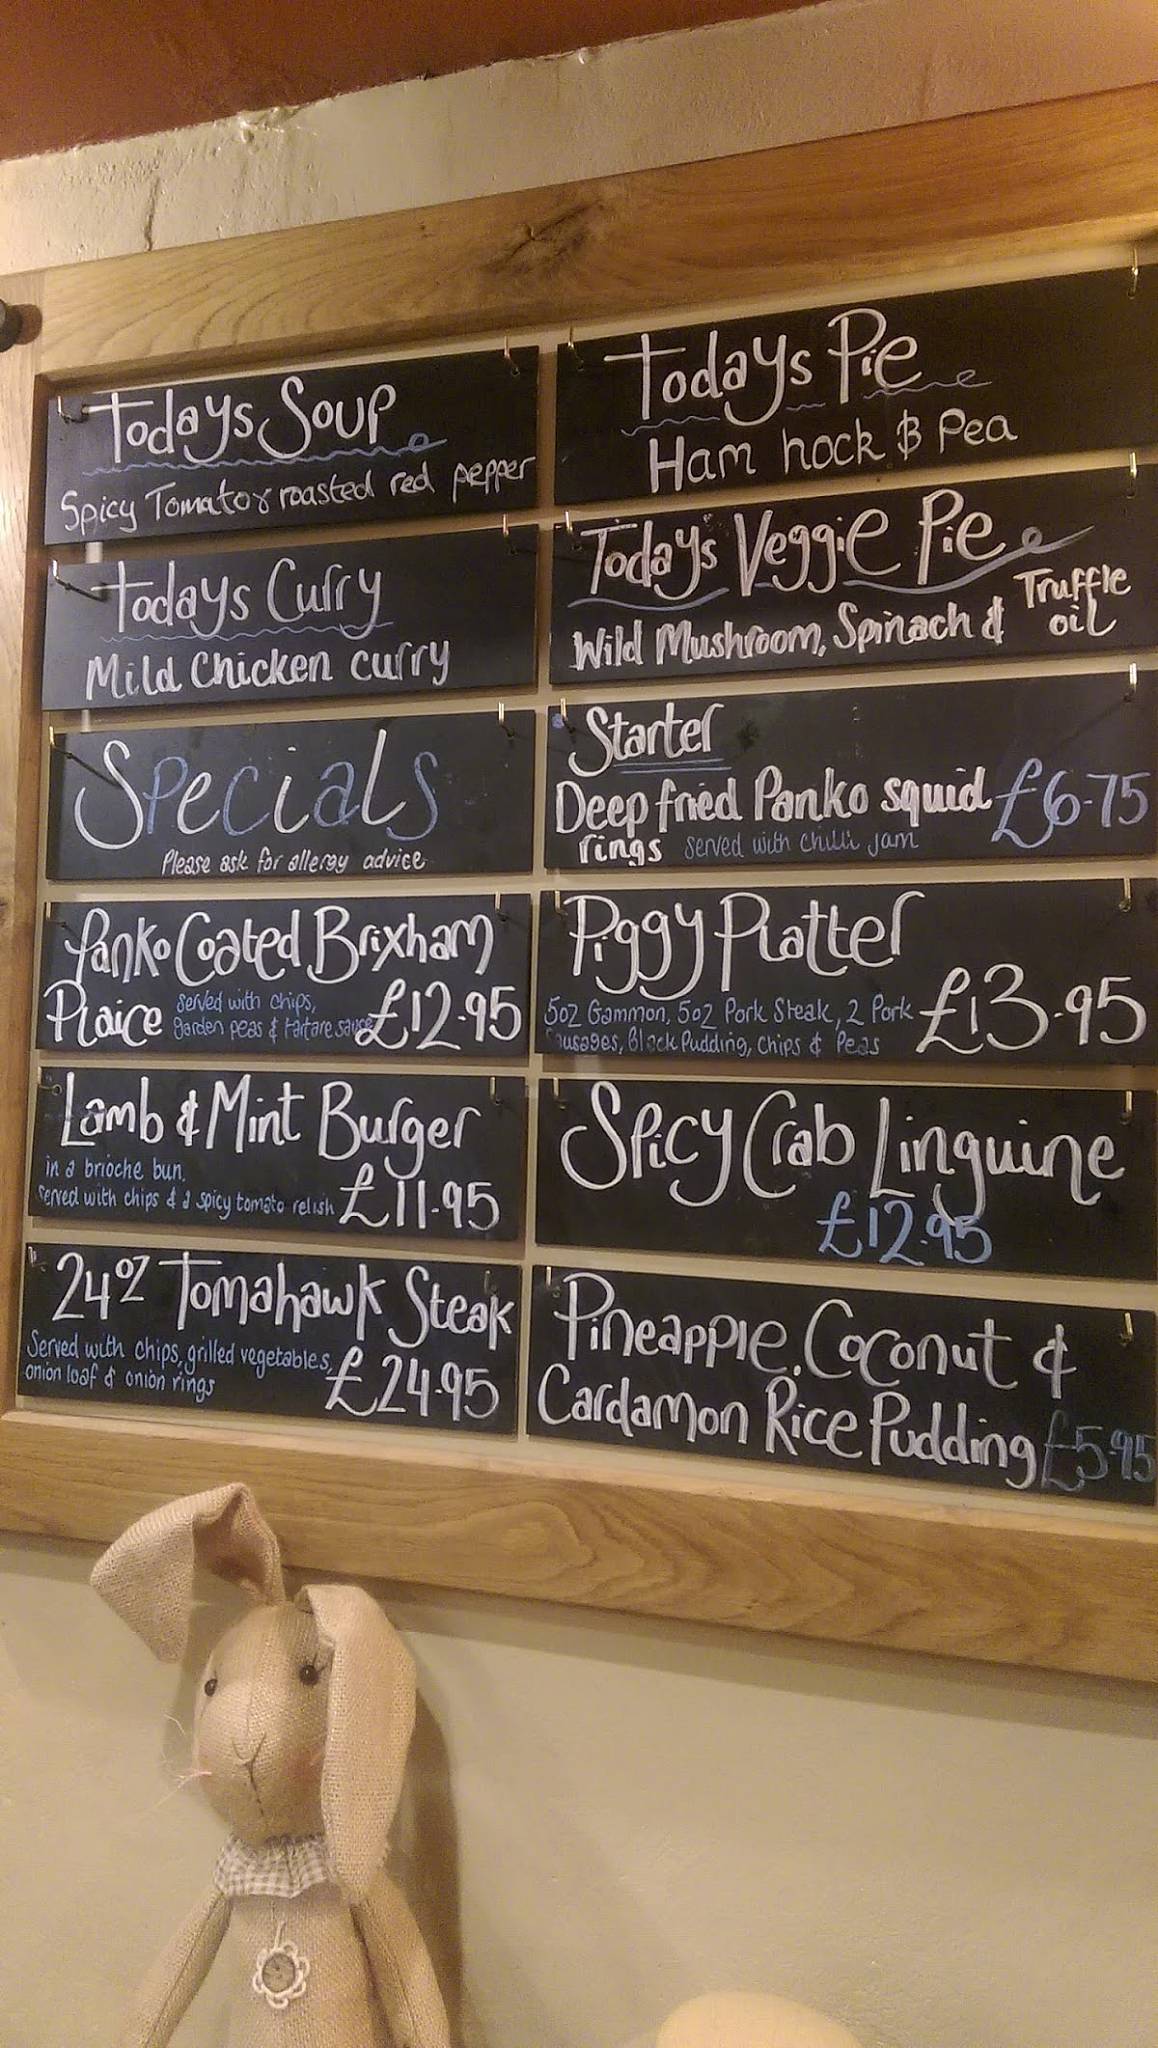 Todays Soup
Spicy Tomato & roasted red pepper
Todays Pie
Ham hock & Pea
Todays Curry
Mild Chicken curry
Todays Veggie Pie
Wild Mushroom, Spinach & Truffle
oil
Specials
Please ask for allergy advice
Starter
Deep fried Panko squid £6.75
rings served with chilli jam
Panko Coated Brixham
Plaice served with chips,
garden peas & tartare sauce £12.95
Piggy Platter
5oz Gammon, 5oz Pork Steak, 2 Pork
Sausages, Black Pudding, Chips & Peas £13.95
Lamb & Mint Burger
in a brioche bun,
served with chips & a spicy tomato relish £11.95
Spicy Crab Linguine
£12.95
24oz Tomahawk Steak
Served with chips, grilled vegetables,
onion loaf & onion rings £24.95
Pineapple, Coconut &
Cardamon Rice Pudding £5.95